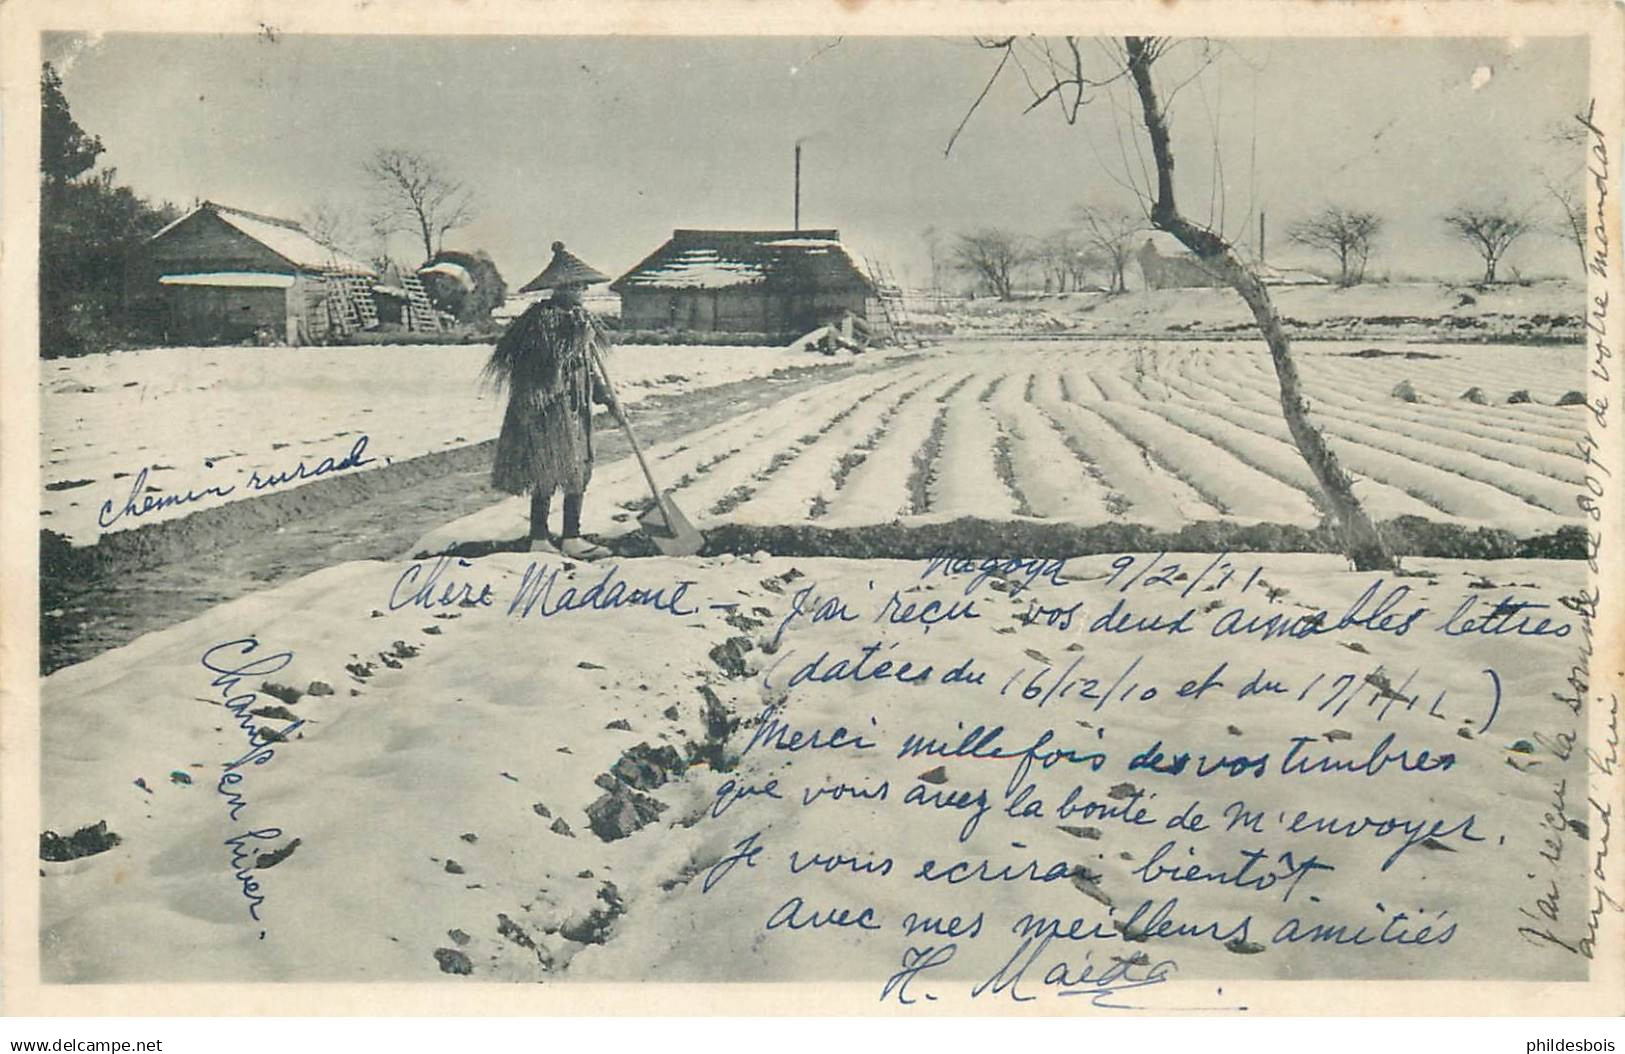 chemin rural.
Champ en hiver.
Nagoya 9/2/11
Chère Madame. –
J'ai reçu vos deux aimables lettres
(datées du 16/12/10 et du 17/1/11.)
Merci mille fois des vos timbres
que vous avez la bonté de m'envoyer.
Je vous ecrirai bientôt
avec mes meilleurs amitiés
H. Maéda
J'ai reçu la somme de 80 fr de votre mandat
aujourd'hui
delcampe.net
phildesbois